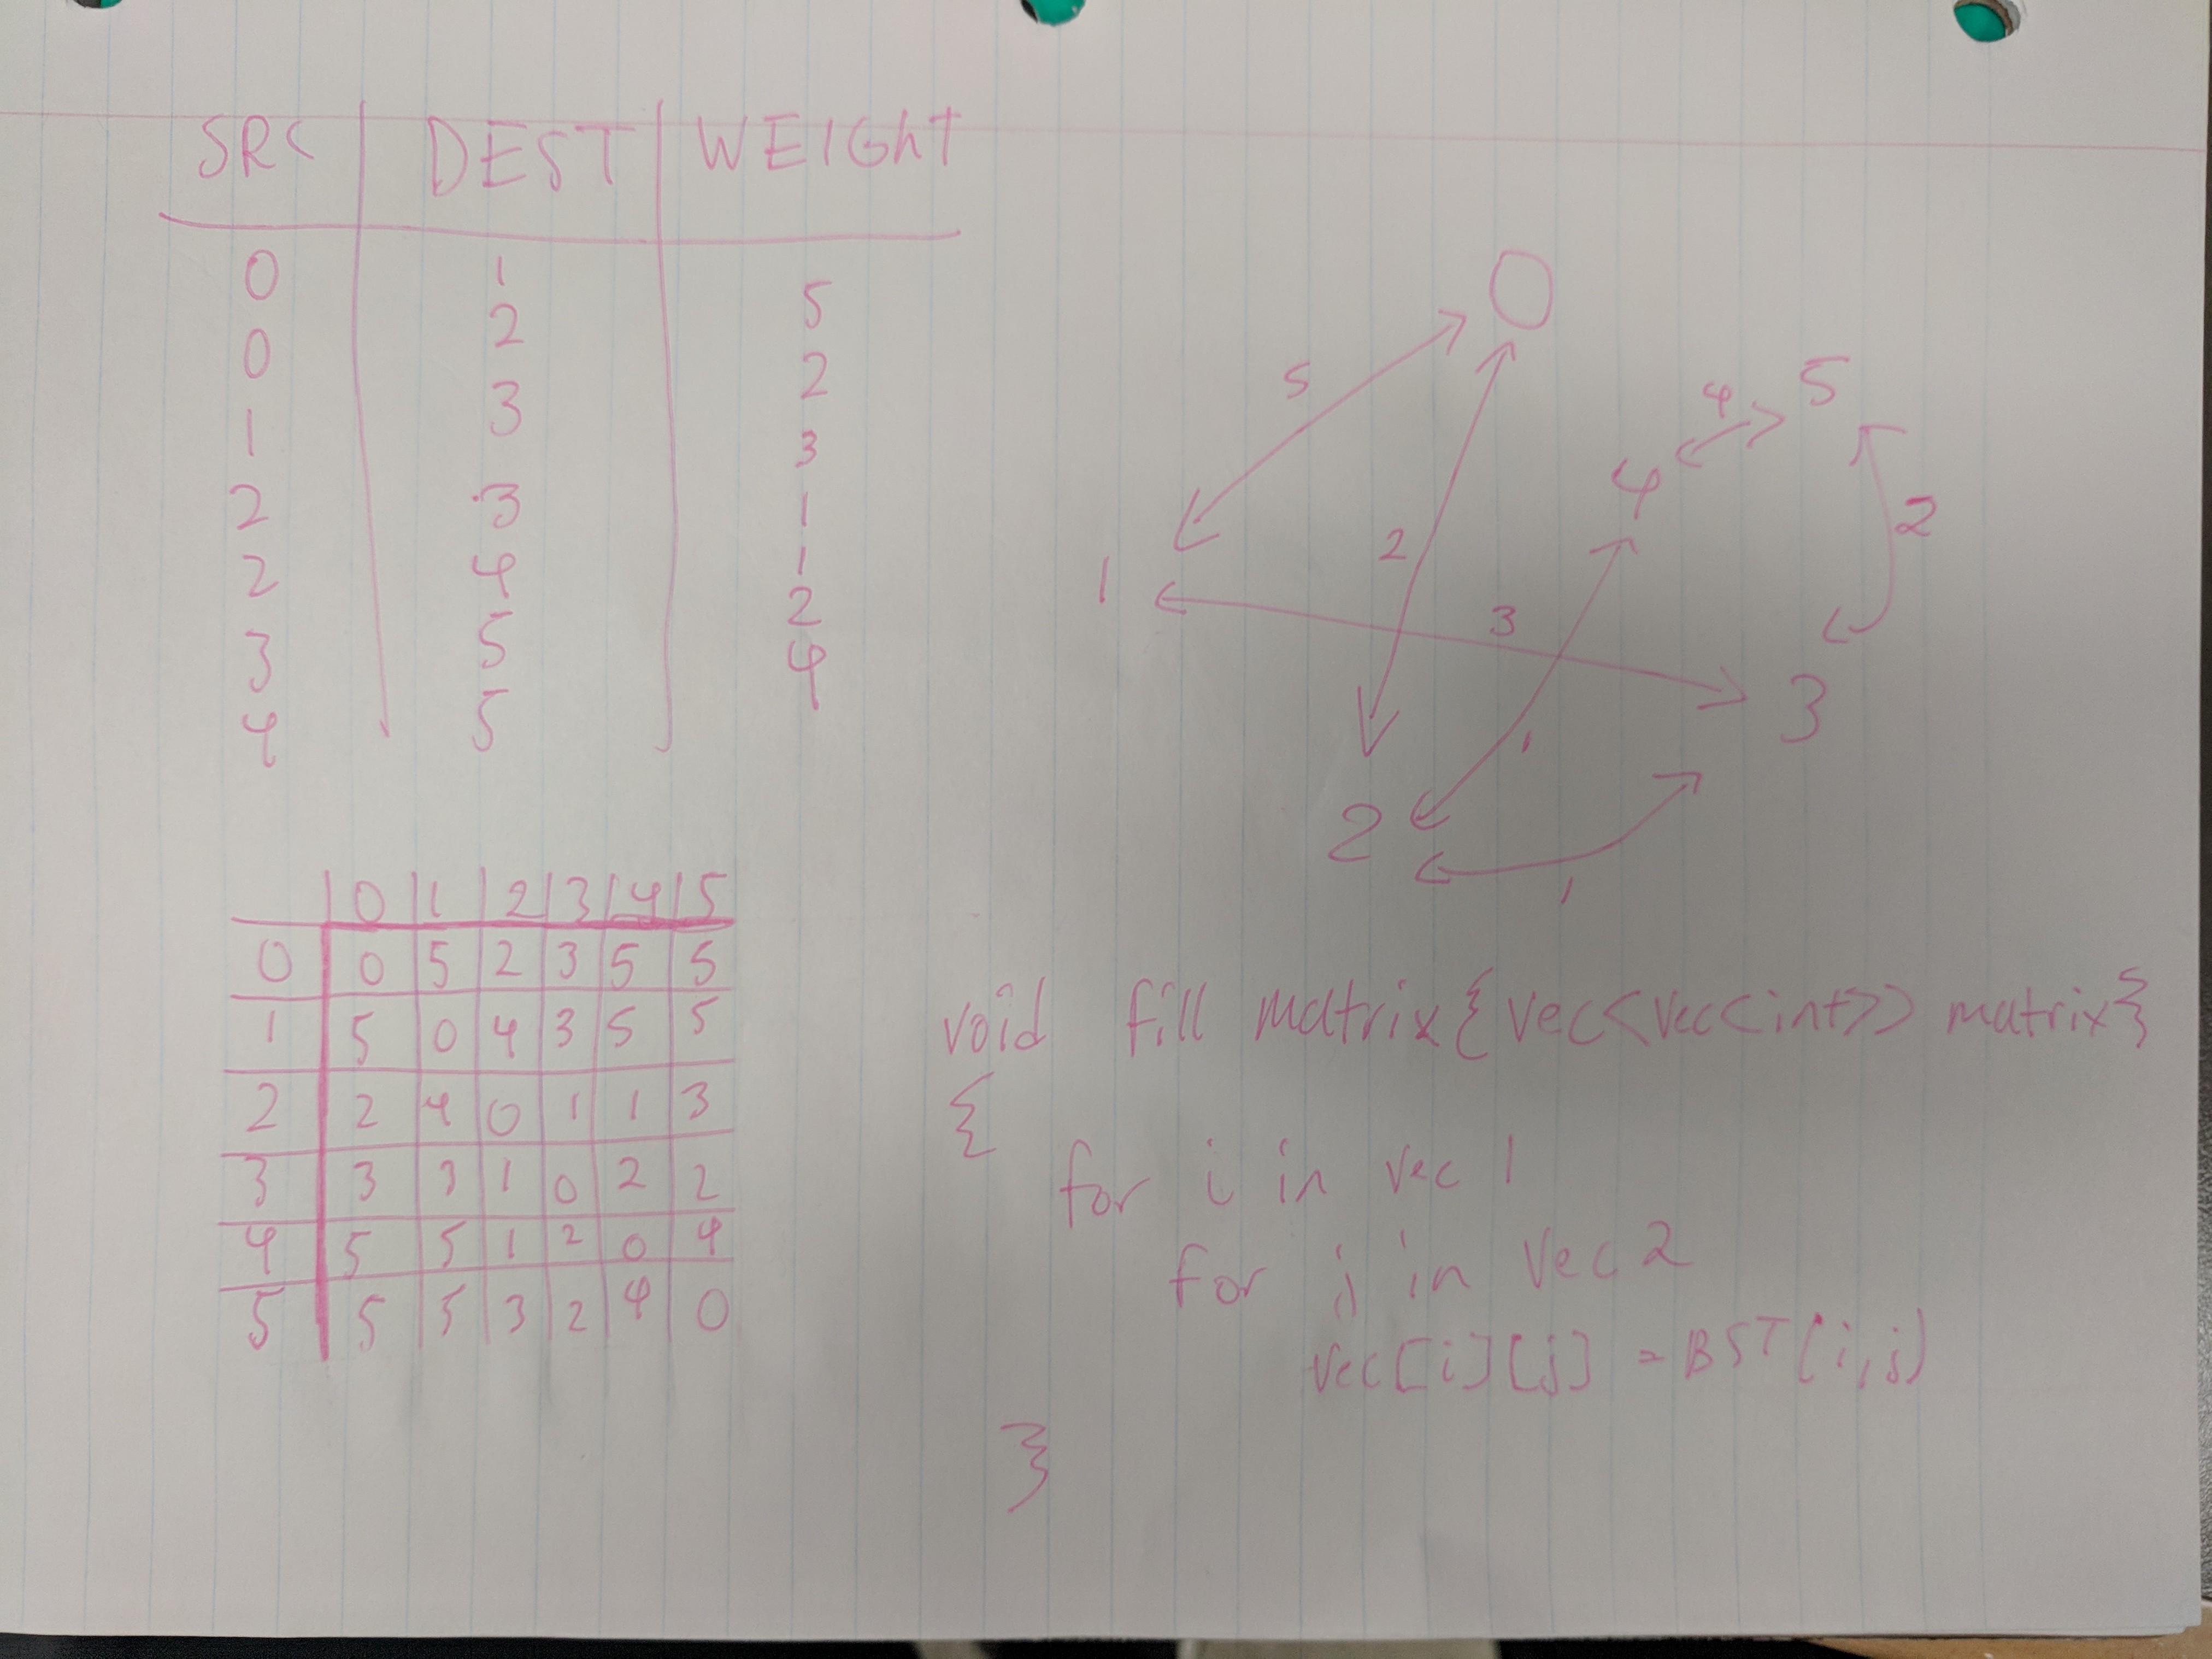 SRC DEST WEIGhT
0 1 5
0 2 2
1 3 3
2 3 1
2 4 1
3 5 2
4 5 4
0
5
4 5
4
2
2
1
3
3
1
2
1
0 1 2 3 4 5
0 0 5 2 3 5 5
1 5 0 4 3 5 5
2 2 4 0 1 1 3
3 3 3 1 0 2 2
4 5 5 1 2 0 4
5 5 5 3 2 4 0
void fill matrix{vec<vec<int>> matrix}
{
for i in vec 1
for j in vec 2
vec[i][j] = BST(i,j)
}